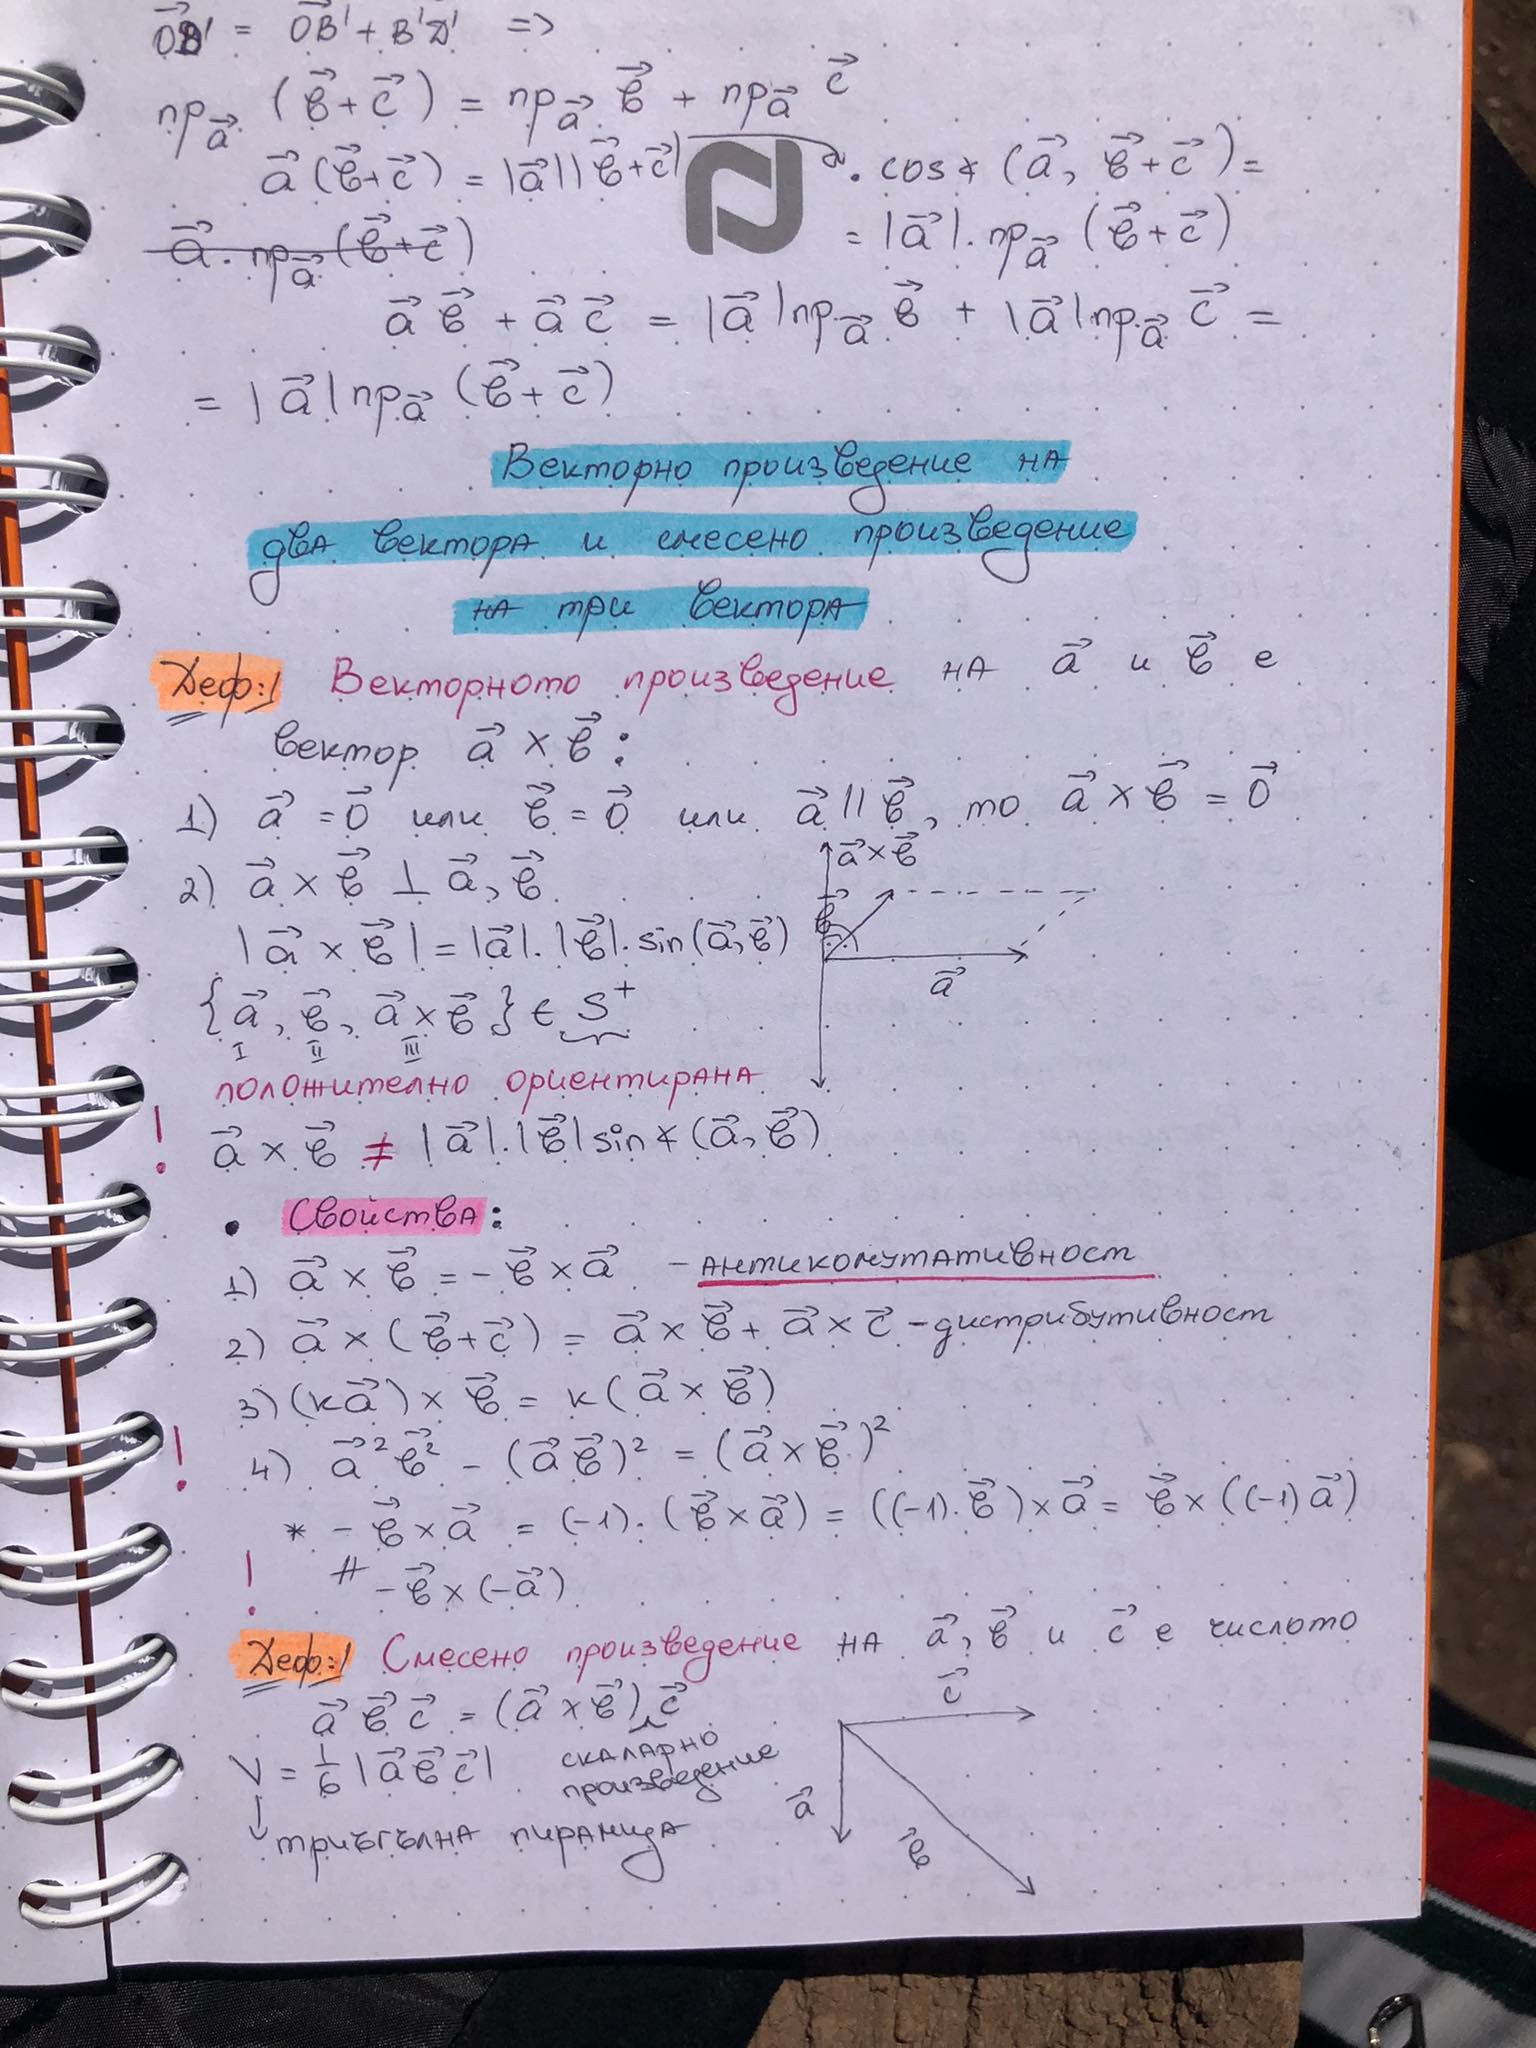 O⃗D' = O⃗B' + B'D' =>
пр_a⃗ (b⃗ + c⃗) = пр_a⃗ b⃗ + пр_a⃗ c⃗
a⃗ (b⃗ + c⃗) = |a⃗| |b⃗ + c⃗| . cos∢ (a⃗, b⃗ + c⃗) =
a⃗ . пр_a⃗ (b⃗ + c⃗) = |a⃗| . пр_a⃗ (b⃗ + c⃗)
a⃗ b⃗ + a⃗ c⃗ = |a⃗| пр_a⃗ b⃗ + |a⃗| пр_a⃗ c⃗ =
= |a⃗| пр_a⃗ (b⃗ + c⃗)
Векторно произведение на
два вектора и смесено произведение
на три вектора
Деф:1 Векторното произведение на a⃗ и b⃗ е
вектор a⃗ × b⃗ :
1) a⃗ = 0⃗ или b⃗ = 0⃗ или a⃗ || b⃗, то a⃗ × b⃗ = 0⃗
2) a⃗ × b⃗ ⊥ a⃗, b⃗
|a⃗ × b⃗| = |a⃗| . |b⃗| . sin(a⃗, b⃗)
{a⃗, b⃗, a⃗ × b⃗} ∈ S⁺
I II III
a⃗ × b⃗
b⃗
a⃗
положително ориентирана
! a⃗ × b⃗ ≠ |a⃗| . |b⃗| sin∢ (a⃗, b⃗)
• Свойства:
1) a⃗ × b⃗ = - b⃗ × a⃗ - антикомутативност
2) a⃗ × (b⃗ + c⃗) = a⃗ × b⃗ + a⃗ × c⃗ - дистрибутивност
3) (к a⃗) × b⃗ = к (a⃗ × b⃗)
! 4) a⃗² b⃗² - (a⃗ b⃗)² = (a⃗ × b⃗)²
* - b⃗ × a⃗ = (-1) . (b⃗ × a⃗) = ((-1) . b⃗) × a⃗ = b⃗ × ((-1) a⃗)
! # - b⃗ × (-a⃗)
Деф:1 Смесено произведение на a⃗, b⃗ и c⃗ е числото
a⃗ b⃗ c⃗ = (a⃗ × b⃗) c⃗
скаларно
произведение
V = 1/6 |a⃗ b⃗ c⃗|
триъгълна пирамида
c⃗
a⃗
b⃗